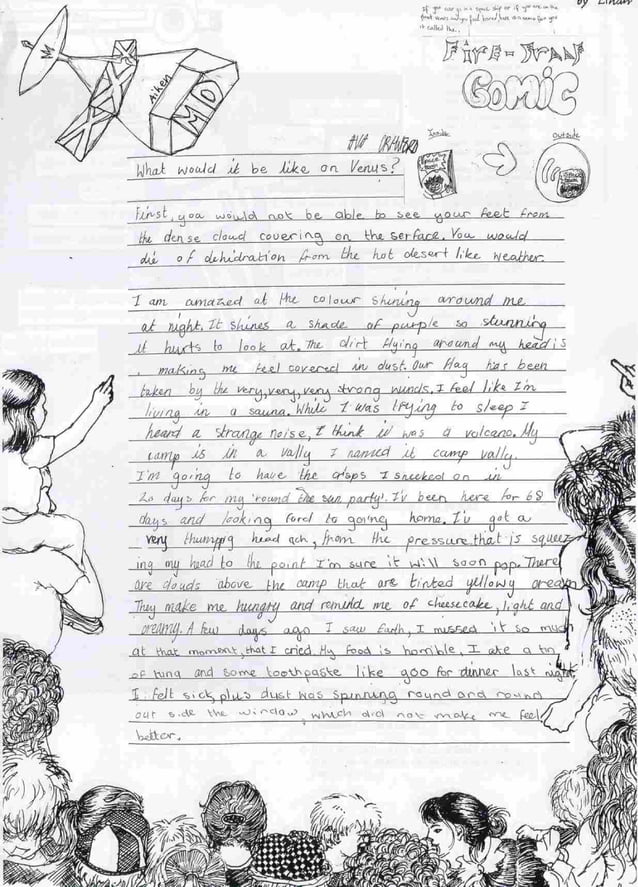 by
If you ever go in a space ship or if you are on the
front and you feel bored here is a game for you
it called the..
Fire-Proof
Comic
M
Aiken
MD
Inside
Outside
What would it be like on Venus?
First, you would not be able to see your feet from
the dense cloud covering on the serface. You would
die of dehidration from the hot desert like weather.
I am amazed at the colour shining around me
at night. It shines a shade of purple so stunning
it hurts to look at. The dirt flying around my head is
, making me feel covered in dust. Our flag has been
taken by the very, very, very strong winds. I feel like I'm
living in a sauna. While I was trying to sleep I
heard a strange noise, I think it was a volcano. My
camp is in a vally I named it camp vally.
I'm going to have the crisps I sneeked on in
20 days for my 'round the sun party'. I'v been here for 68
days and looking ford to going home. I'v got a
very thumping head ach, from the pressure that is squeez
ing my head to the point I'm sure it will soon pop. There
are clouds above the camp that are tinted yellowy cream
They make me hungry and remind me of cheesecake, light and
creamy. A few days ago I saw Earth, I missed it so much
at that moment, that I cried. My food is horrible, I ate a tin
of tuna and some toothpaste like goo for dinner last night
I felt sick, plus dust was spinning round and round
out side the window, which did not make me feel
better.